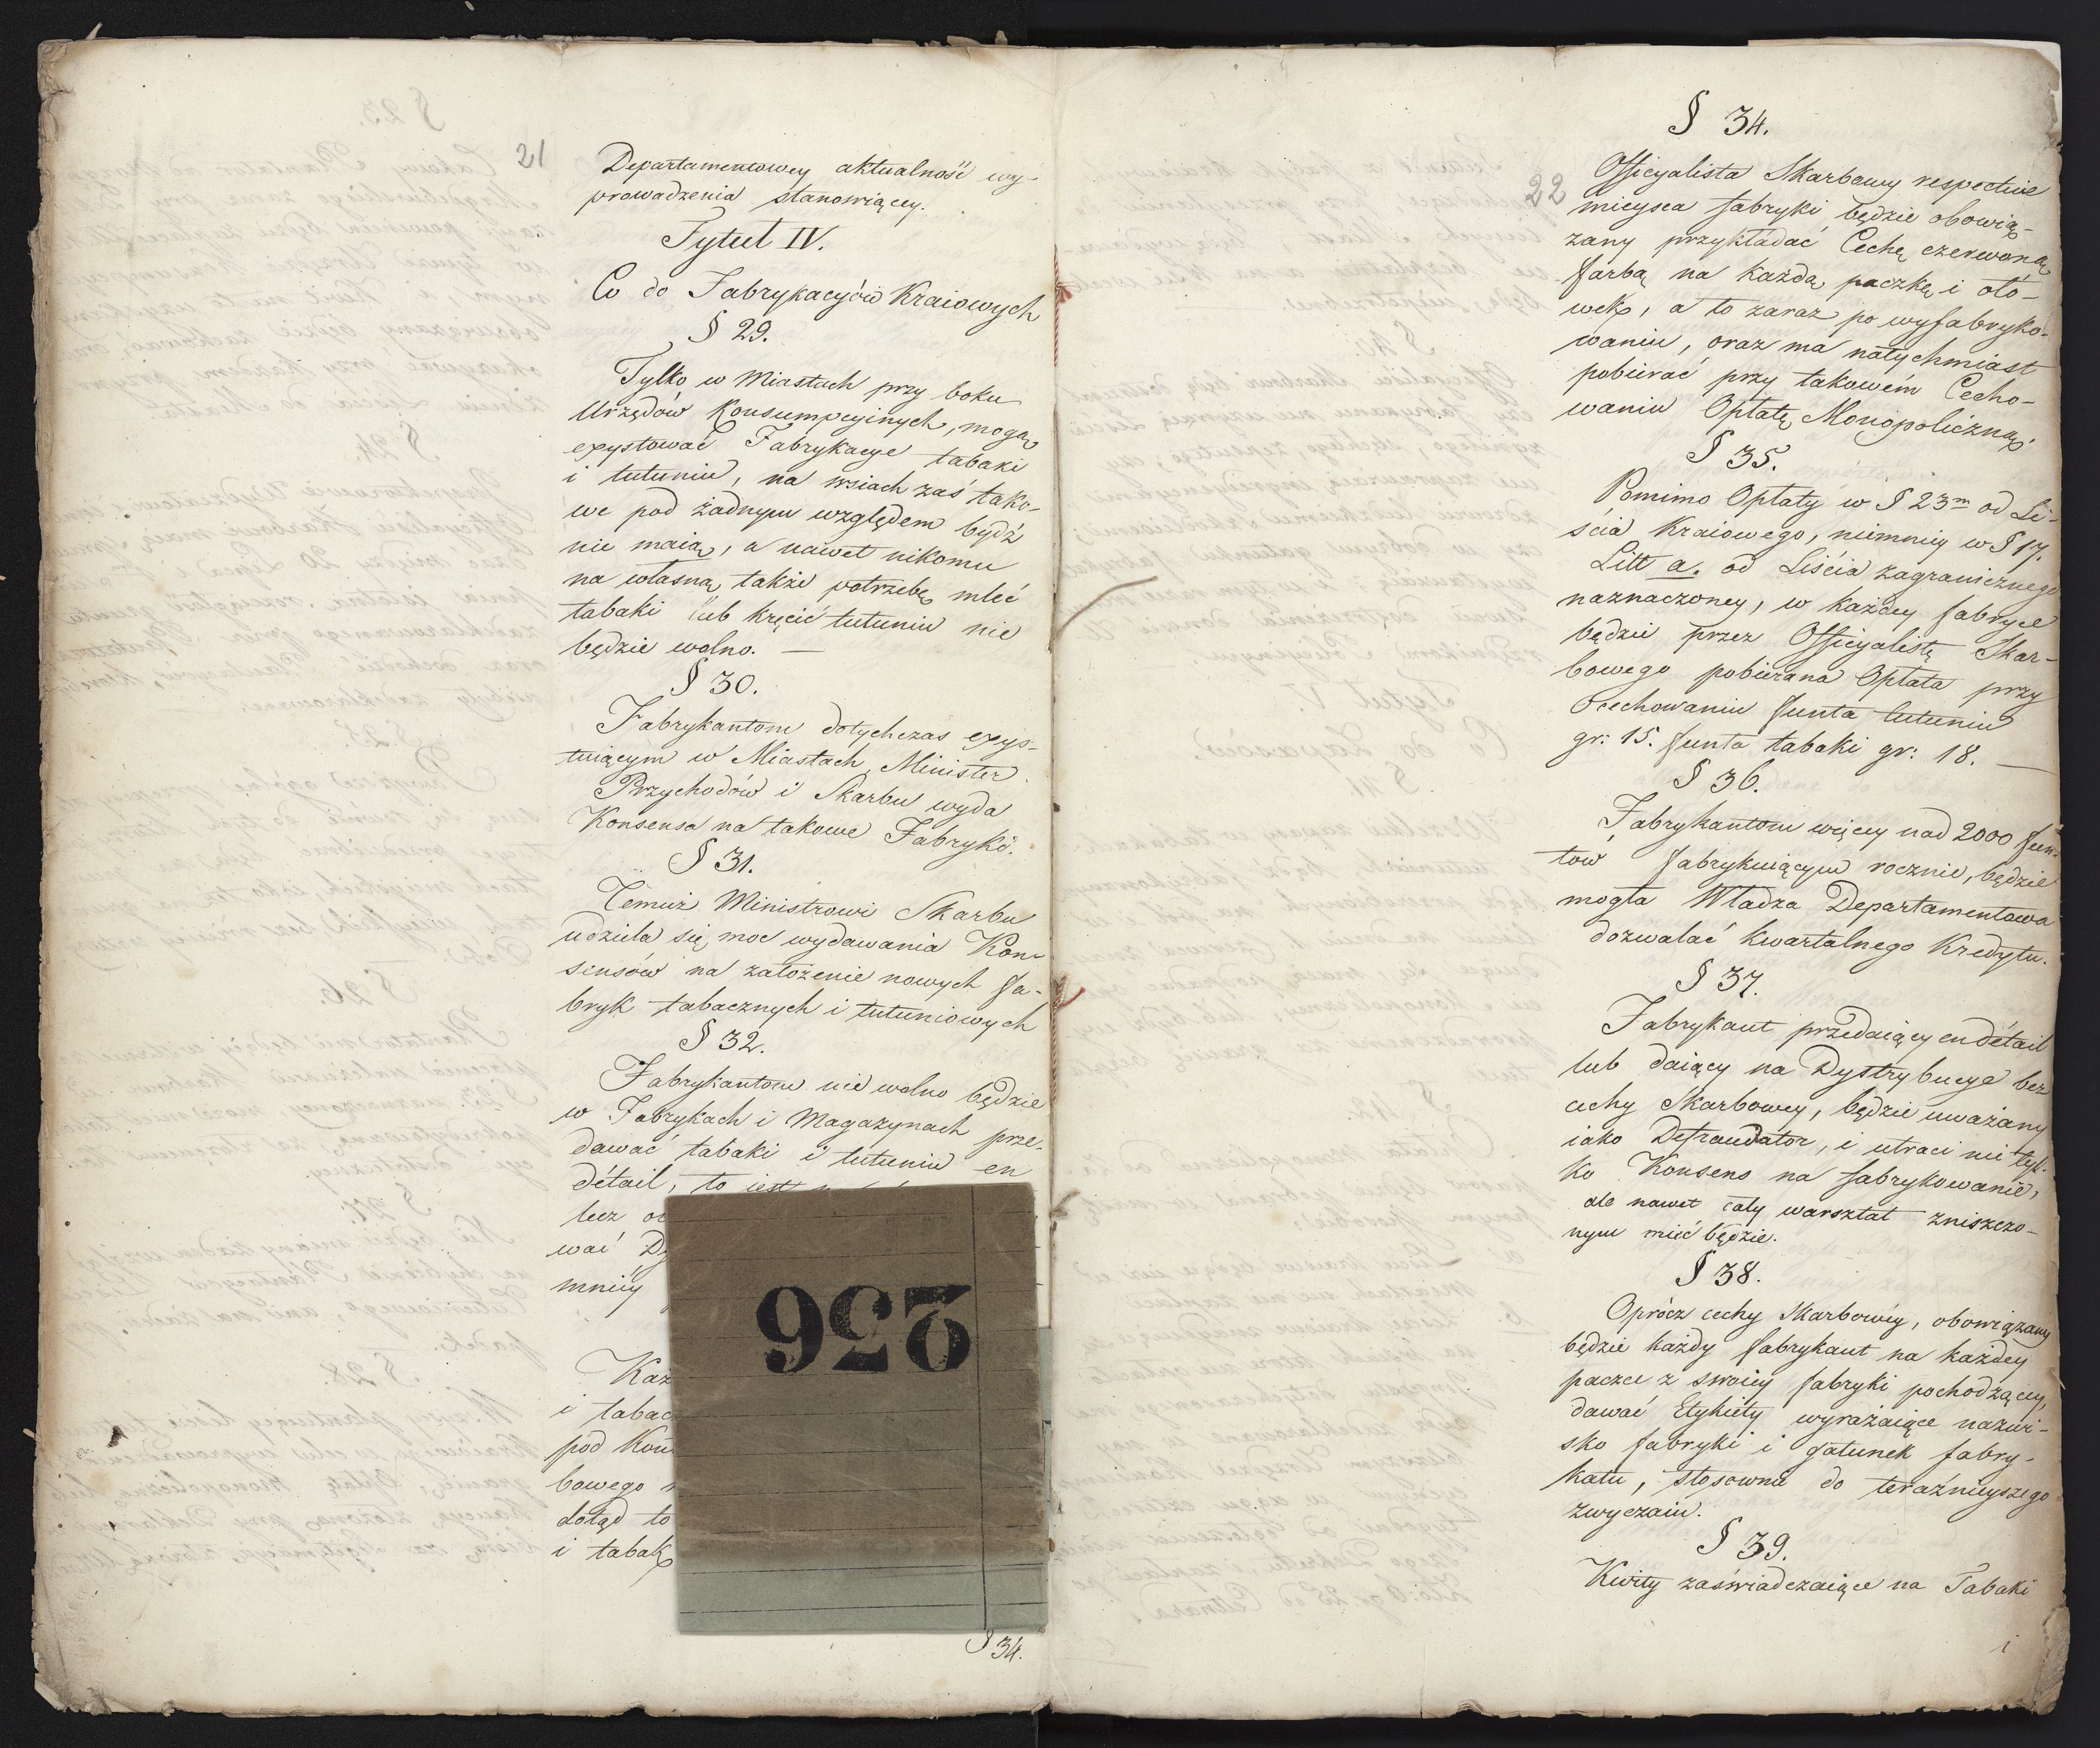 21
Departamentowey aktualność wy-
prowadzenia stanowiącey.
Tytuł IV.
Co do Fabrykacyiów Kraiowych
§ 29.
Tylko w Miastach przy boku
Urzędów Konsumpcyinych, mogą
exystować Fabrykacye tabaki
i tutuniu, na wsiach zaś tako-
we pod żadnym względem bydź
nie maią, a nawet nikomu
na własną także potrzebę mleć
tabaki lub kręcić tutuniu nie
będzie wolno. —
§ 30.
Fabrykantom dotychczas exys-
tuiącym w Miastach, Minister
Przychodów i Skarbu wyda
Konsensa na takowe Fabryki.
§ 31.
Temuż Ministrowi Skarbu
udziela się moc wydawania Kon-
sensów na założenie nowych fa-
bryk tabacznych i tutuniowych
§ 32.
Fabrykantom nie wolno będzie
w Fabrykach i Magazynach prze-
dawać tabaki i tutuniu en
détail, to iest
lecz
wać
mniéy
Kaz
i tabac
pod Kon
bowego
dotąd to
i tabakę
§ 34.
236
22
§ 34.
Officyalista Skarbowy respective
mieysca fabryki będzie obowią-
zany przykładać Cechę czerwoną
farbą na każdą paczkę i oło-
wek, a to zaraz po wyfabryko-
waniu, oraz ma natychmiast
pobierać przy takowém Cecho-
waniu Opłatę Monopoliczną.
§ 35.
Pomimo Opłaty w § 23m od Li-
ścia Kraiowego, niemniey w § 17.
Litt a. od Liścia zagranicznego
naznaczoney, w każdey fabryce
będzie przez Officyalistę Skar-
bowego pobierana Opłata przy
Ocechowaniu funta tutuniu
gr: 15. funta tabaki gr: 18. —
§ 36.
Fabrykantom więcey nad 2000 fun-
tów fabrykuiącym rocznie, będzie
mogła Władza Departamentowa
dozwalać kwartalnego Kredytu.
§ 37.
Fabrykant przedaiący en détail
lub daiący na Dystrybucye bez
cechy Skarbowey, będzie uważany
iako Defraudator, i utraci nie tyl-
ko Konsens na fabrykowanie,
ale nawet cały warsztat zniszczo-
nym mieć będzie.
§ 38.
Oprócz cechy Skarbowéy, obowiązany
będzie każdy fabrykant na każdey
paczce z swoiey fabryki pochodzącey,
dawać Etykiety wyrażaiące nazwi-
sko fabryki i gatunek fabry-
katu, stosownie do teraźnieyszego
zwyczaiu.
§ 39.
Kwity zaświadczaiące na Tabaki
i